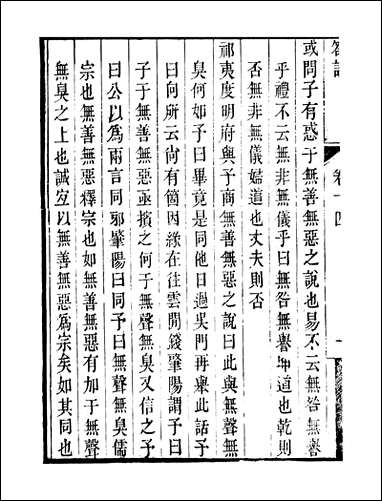 劄記
卷十四
一
或問子有惑于無善無惡之說也易不云無咎無譽
乎禮不云無非無儀乎曰無咎無譽坤道也乾則
否無非無儀婦道也丈夫則否
祁夷度明府與予商無善無惡之說曰此與無聲無
臭何如予曰畢竟是同他日過吳門再舉此話予
曰向所云尚有箇因緣在往雲間錢肇陽謂予曰
子于無善無惡亟擯之何于無聲無臭又信之予
曰公以為兩言同邪肇陽曰同予曰無聲無臭儒
宗也無善無惡釋宗也如無善無惡有加于無聲
無臭之上也誠宜以無善無惡為宗矣如其同也